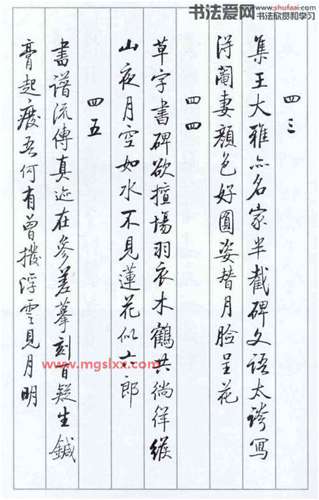 书法爱网
www.shufaai.com
书法欣赏和学习
四三
集王大雅亦名家半截碑文語太誇寫
得閹妻顏色好圓姿替月臉呈花
四四
草字書碑欲擅場羽衣木鶴共徜徉緱
山夜月空如水不見蓮花似六郎
四五
書譜流傳真迹在參差摹刻百疑生鍼
膏起廢吾何有曾撥浮雲見月明
www.mgslxx.com